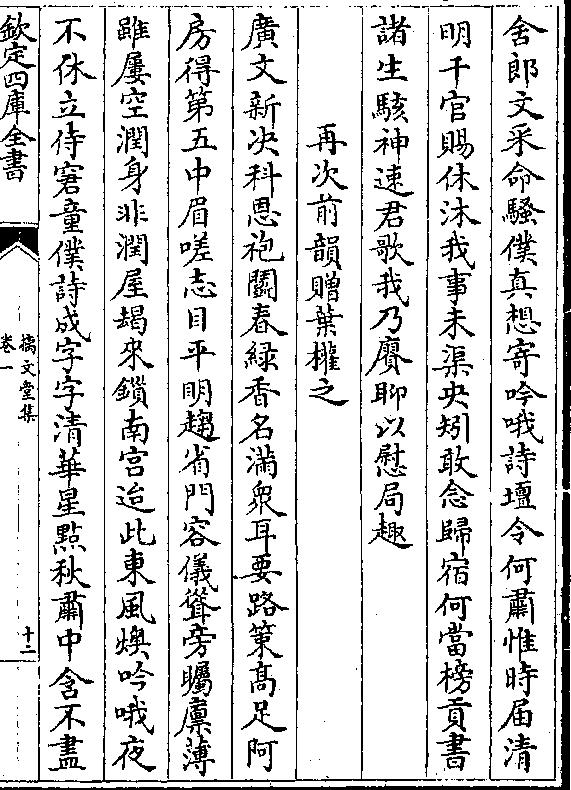 舍郎文采命騷僕真想寄吟哦詩壇令何肅惟時届清
明千官賜休沐我事未渠央矧敢念歸宿何當榜貢書
諸生駭神速君歌我乃賡聊以慰局趣
再次前韻贈葉權之
廣文新决科恩袍鬭春綠香名滿衆耳要路策髙足阿
房得第五中眉嗟志目平明趨省門容儀聳旁矚廪薄
雖屢空潤身非潤屋朅來鎖南宫迨此東風燠吟哦夜
不休立侍窘童僕詩成字字清華星㸃秋肅中含不盡
欽定四庫全書
摛文堂集
卷一
十二